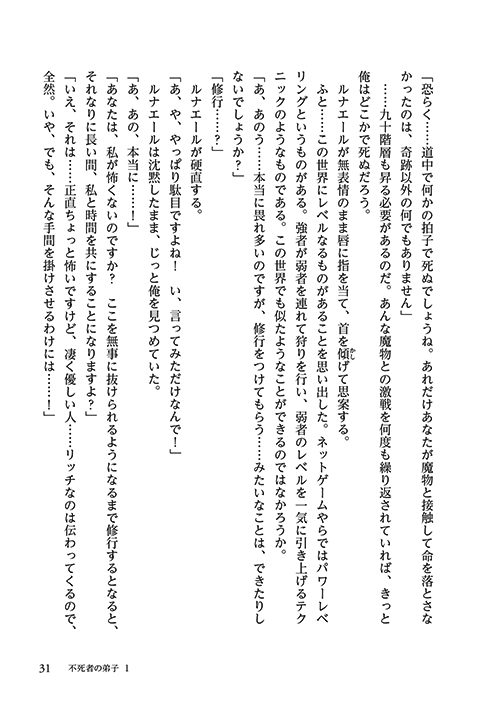 「恐らく……道中で何かの拍子で死ぬでしょうね。あれだけあなたが魔物と接触して命を落とさな
かったのは、奇跡以外の何でもありません」
……九十階層も昇る必要があるのだ。あんな魔物との激戦を何度も繰り返されていれば、きっと
俺はどこかで死ぬだろう。
ルナエールが無表情のまま唇に指を当て、首を傾げて思案する。
かし
ふと……この世界にレベルなるものがあることを思い出した。ネットゲームやらではパワーレベ
リングというものがある。強者が弱者を連れて狩りを行い、弱者のレベルを一気に引き上げるテク
ニックのようなものである。この世界でも似たようなことができるのではなかろうか。
「あ、あのう……本当に畏れ多いのですが、修行をつけてもらう……みたいなことは、できたりし
ないでしょうか？」
「修行……？」
ルナエールが硬直する。
「あ、や、やっぱり駄目ですよね！　い、言ってみただけなんで！」
ルナエールは沈黙したまま、じっと俺を見つめていた。
「あ、あの、本当に……！」
「あなたは、私が怖くないのですか？　ここを無事に抜けられるようになるまで修行するとなると、
それなりに長い間、私と時間を共にすることになりますよ？」
「いえ、それは……正直ちょっと怖いですけど、凄く優しい人……リッチなのは伝わってくるので、
全然。いや、でも、そんな手間を掛けさせるわけには……！」
31　不死者の弟子 1